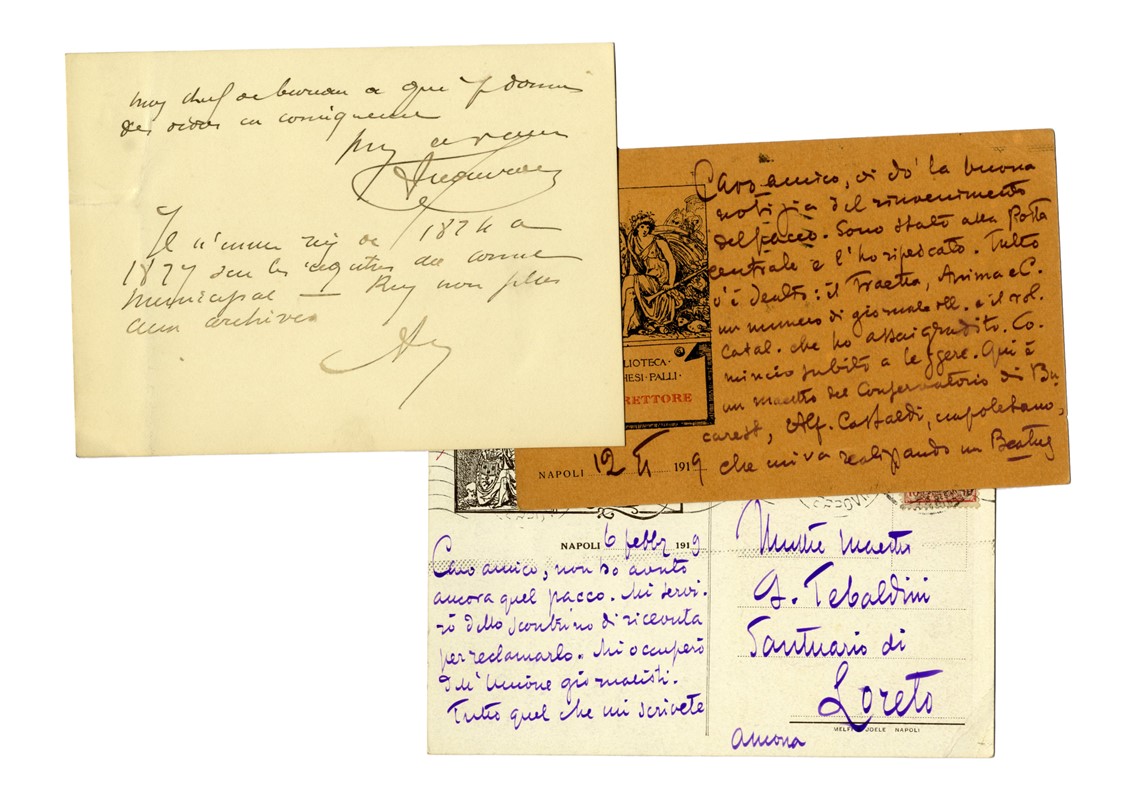 mon chef de bureau a que j'y donne
des ordres en conséquence
Je n'
1824 a
1827 sur les registres du
Municipal — Puy non plus
aux archives
Caro amico, vi do' la buona
notizia del rinvenimento
del pacco. Sono stato alla Posta
centrale e l'ho ripescato. Tutto
v'è dentro: il Traetta, Anima e C.
un numero di giornale ill. e il vol.
Catal. che ho assai gradito. Co-
mincio subito a leggere. Qui è
un maestro del Conservatorio di Bu-
carest, Alf. Castaldi, napoletano,
che mi va realizzando un Beatus
LIOTECA·
HESI·PALLI·
RETTORE
NAPOLI 12 II 1919
NAPOLI 6 febbr 1919
Caro amico, non ho avuto
ancora quel pacco. Mi servi-
rò dello scontrino di ricevuta
per reclamarlo. Mi occuperò
dell'Unione giornalisti.
Tutto quel che mi scrivete
Illustre Maestro
G. Tebaldini
Santuario di
Loreto
MELFI JOELE NAPOLI
Ancona